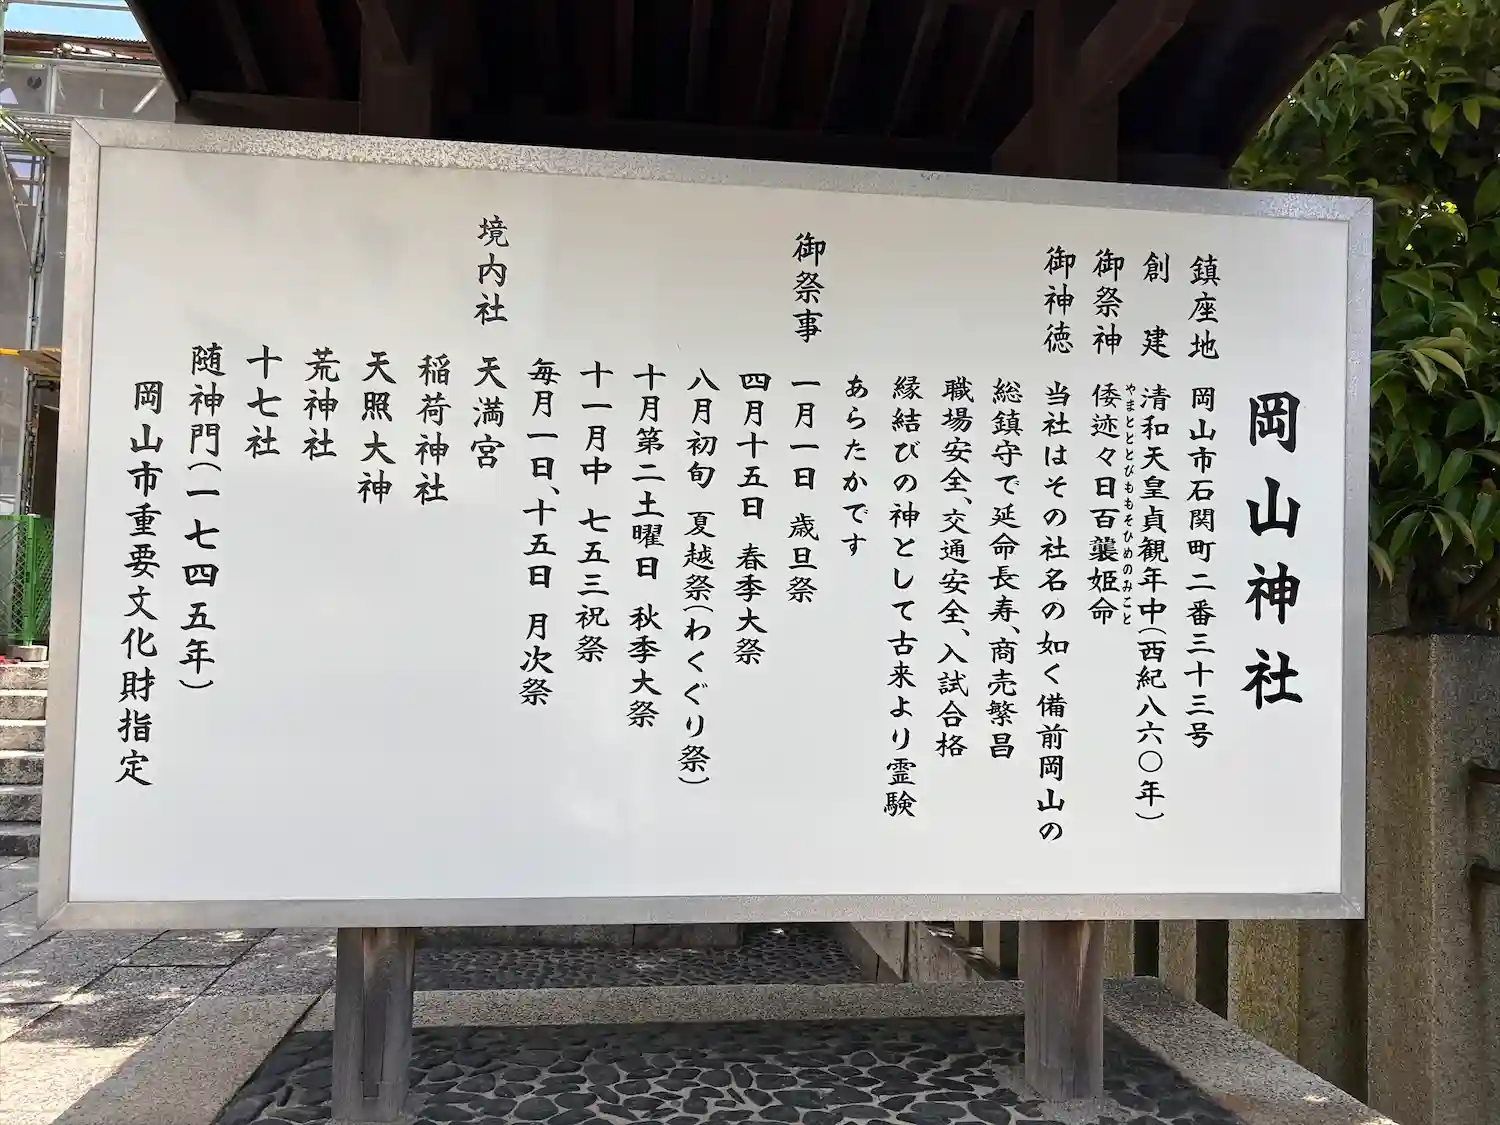 岡山神社
鎮座地　岡山市石関町二番三十三号
創　建　清和天皇貞観年中（西紀八六〇年）
やまとととびももそひめのみこと
御祭神　倭迹々日百襲姫命
御神徳　当社はその社名の如く備前岡山の
総鎮守で延命長寿、商売繁昌
職場安全、交通安全、入試合格
縁結びの神として古来より霊験
あらたかです
御祭事　一月一日　歳旦祭
四月十五日　春季大祭
八月初旬　夏越祭（わくぐり祭）
十月第二土曜日　秋季大祭
十一月中　七五三祝祭
毎月一日、十五日　月次祭
境内社　天満宮
稲荷神社
天照大神
荒神社
十七社
随神門（一七四五年）
岡山市重要文化財指定